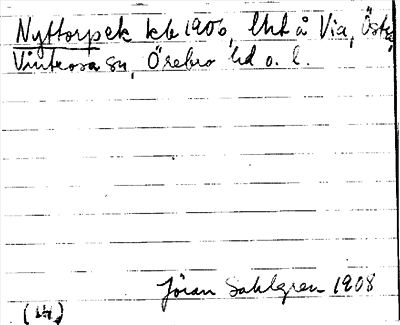 Nyttorpsek kb 1900, lht å Via, Öste
Vintrosa sn, Örebro hd o. l.
Jöran Sahlgren 1908